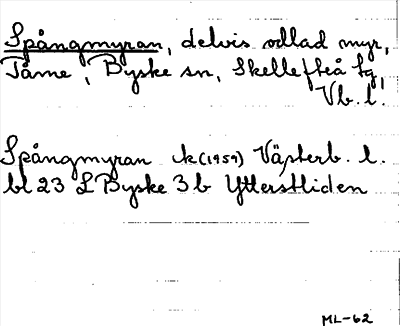 Spångmyran, delvis odlad myr,
Tåme, Byske sn, Skellefteå tg
Vb. l.
Spångmyran k (1959) Västerb. l.
bl 23 L Byske 3 b Ytterstliden
ML-62